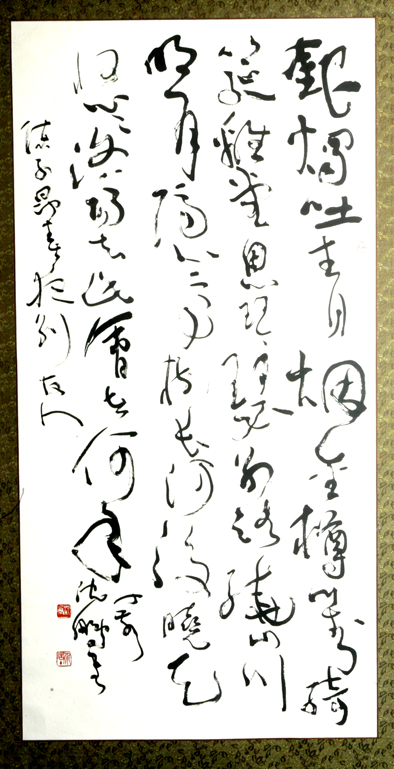 銀燭吐青烟金樽對綺
筵離堂思琴瑟别路繞山川
明月隱高樹長河没曉天
悠悠洛陽去此會在何年
陳子昂春夜别友人
沈鵬書